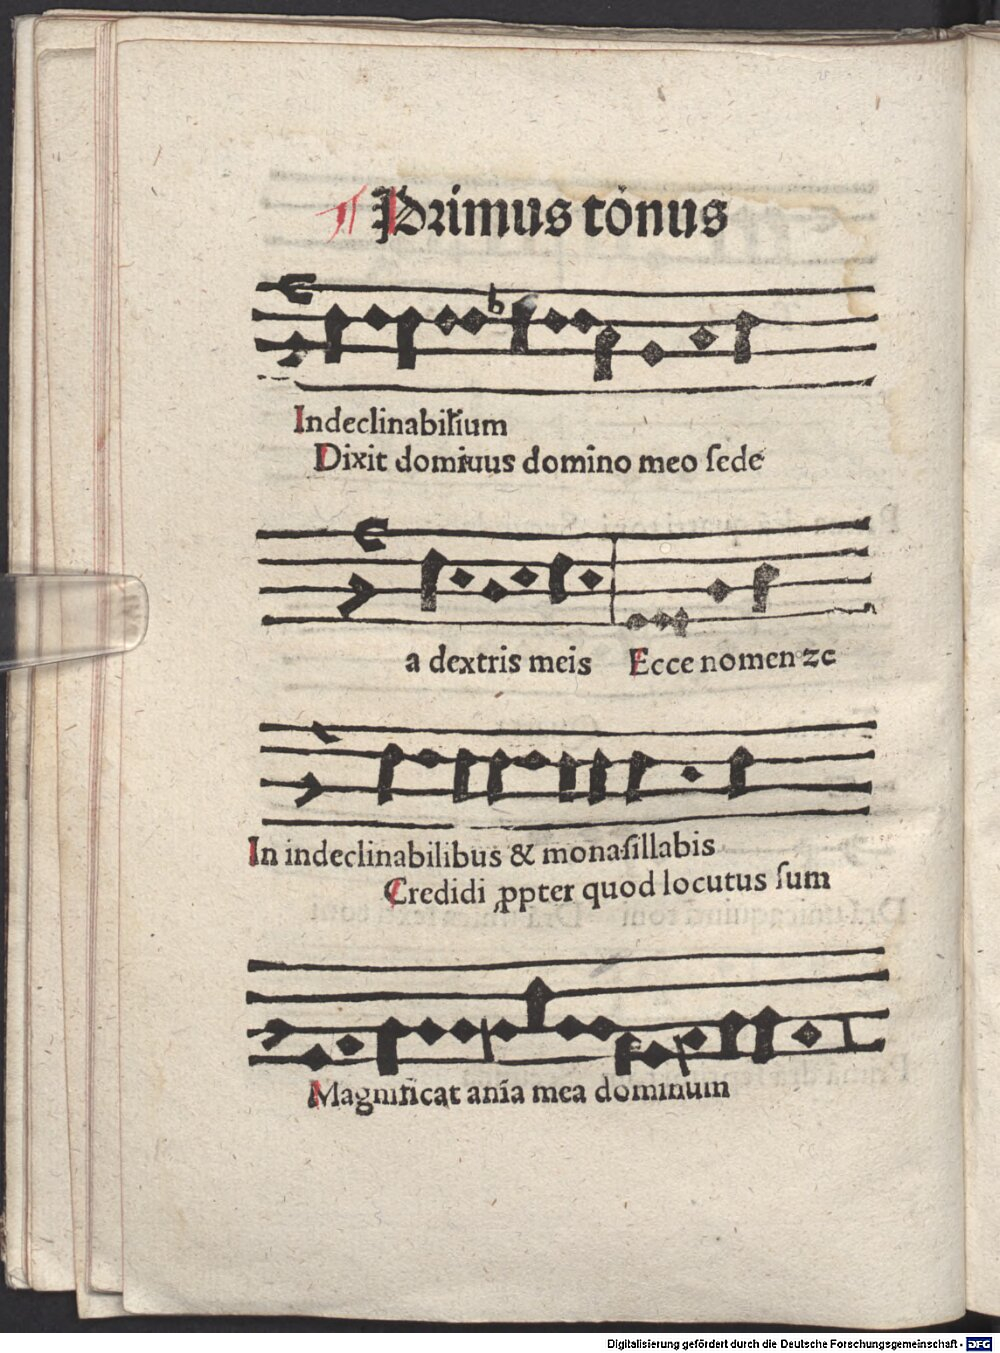 Primus tonus
Indeclinabilium
Dixit domiuus domino meo sede
a dextris meis Ecce nomen ⁊c
In indeclinabilibus & monasillabis
Credidi ꝓpter quod locutus sum
Magnificat anīa mea dominum
Digitalisierung gefördert durch die Deutsche Forschungsgemeinschaft - DFG